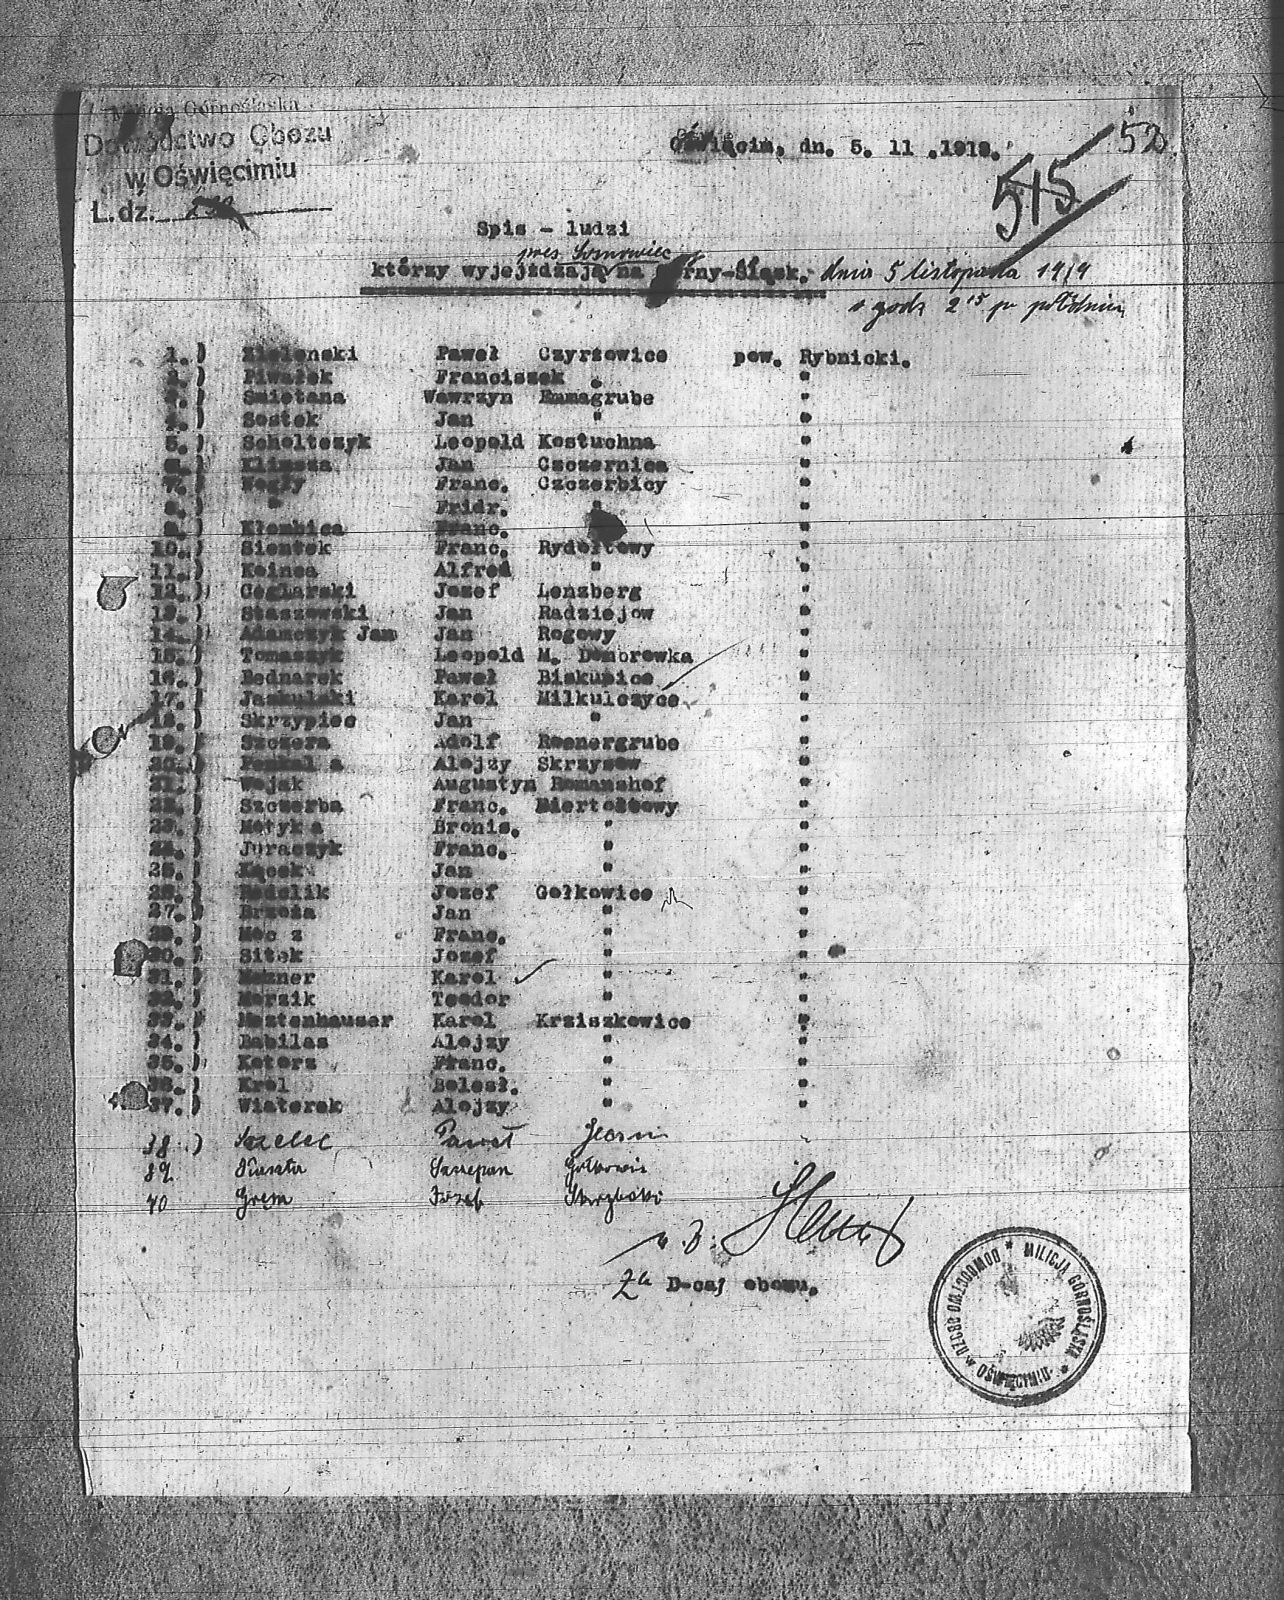 Milicja Górnośląska
Dowództwo Obozu
w Oświęcimiu
L. dz.
Oświęcim, dn. 5. 11 .1919.
52
515
Spis - ludzi
przes Sosnowiec
którzy wyjeżdżają na Górny-Śląsk. dnia 5 listopada 1919
o godz 2 15 po południu
1.) Zielonski Paweł Czyrzowice pow. Rybnicki.
2.) Piwałek Franciszek " "
3.) Smietana Wawrzyn Emmagrube "
4.) Sostek Jan " "
5.) Scholtszyk Leopold Kostuchna "
6.) Klimsza Jan Czczernica "
7.) Węgły Franc. Czczerbicy "
8.) " Fridr. " "
9.) Kłembica Franc. "
10.) Sientek Franc. Rydołtowy "
11.) Alfred " "
12.) Ceglarski Jozef Lenzberg "
13.) Staszewski Jan Radziejow "
14.) Adamczyk Jan Jan Rogowy "
15.) Tomaszyk Leopold M. Dombrowka "
16.) Bednarek Paweł Biskupice "
17.) Jaskulski Karol Milkulczyce "
18.) Skrzypiec Jan " "
19.) Szczera Adolf Roenergrube "
20.) Alojzy Skrzysow "
21.) Wojak Augustyn Romanshof "
22.) Szczerba Franc. Biertołtowy "
23.) Motyka Bronis. " "
24.) Juraczyk Franc. " "
25.) Kącek Jan " "
26.) Jozef Gołkowice "
27.) Brzoza Jan " "
29.) Moc z Franc. " "
30.) Sitek Jozef " "
31.) Karol " "
32.) Marzik Teodor " "
33.) Mostenhauser Karol Krziszkowice "
34.) Babilas Alojzy " "
35.) Koterz Franc. " "
36.) Krol Bolesł. " "
37.) Wiaterek Alojzy " "
38.) Paweł
39. Szczepan
40 Józef
Za D-caj obozu.
DOWÓDCTWO OBOZU w OŚWIĘCIMIU * MILICJA GÓRNOŚLĄSKA *